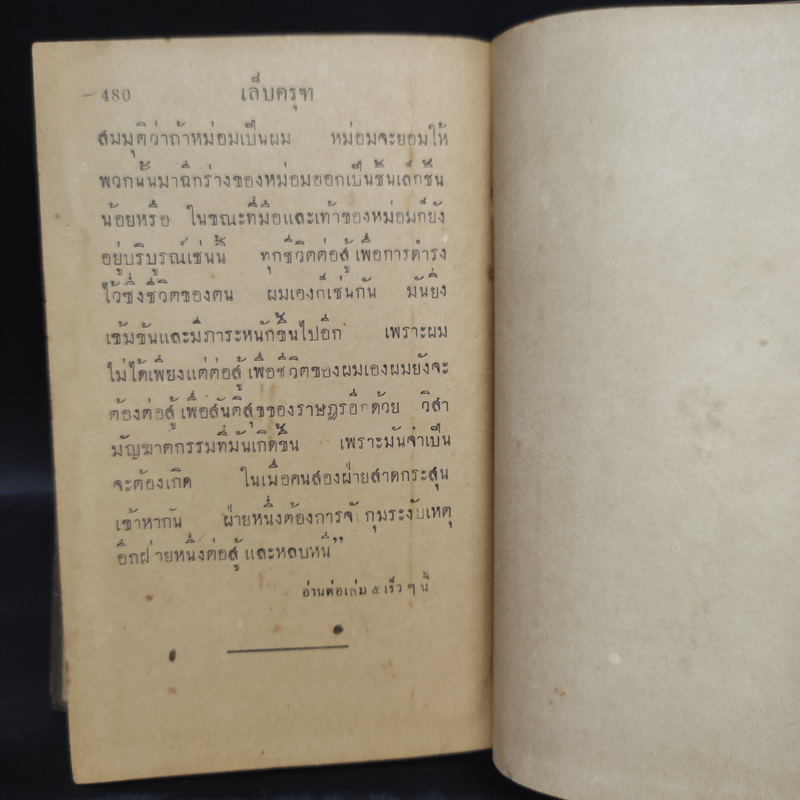 480 เล็บครุฑ
สมมุติว่าถ้าหม่อมเป็นผม หม่อมจะยอมให้
พวกนั้นมาฉีกร่างของหม่อมออกเป็นชิ้นเล็กชิ้น
น้อยหรือ ในขณะที่มือและเท้าของหม่อมก็ยัง
อยู่บริบูรณ์เช่นนี้ ทุกชีวิตต่อสู้เพื่อการดำรง
ไว้ซึ่งชีวิตของตน ผมเองก็เช่นกัน มันยิ่ง
เข้มข้นและมีภาระหนักขึ้นไปอีก เพราะผม
ไม่ได้เพียงแต่ต่อสู้เพื่อชีวิตของผมเองผมยังจะ
ต้องต่อสู้เพื่อสันติสุขของราษฎรอีกด้วย วิสา
มัญฆาตกรรมที่มันเกิดขึ้น เพราะมันจำเป็น
จะต้องเกิด ในเมื่อคนสองฝ่ายสาดกระสุน
เข้าหากัน ฝ่ายหนึ่งต้องการจับกุมระงับเหตุ
อีกฝ่ายหนึ่งต่อสู้และหลบหนี”
อ่านต่อเล่ม ๕ เร็ว ๆ นี้